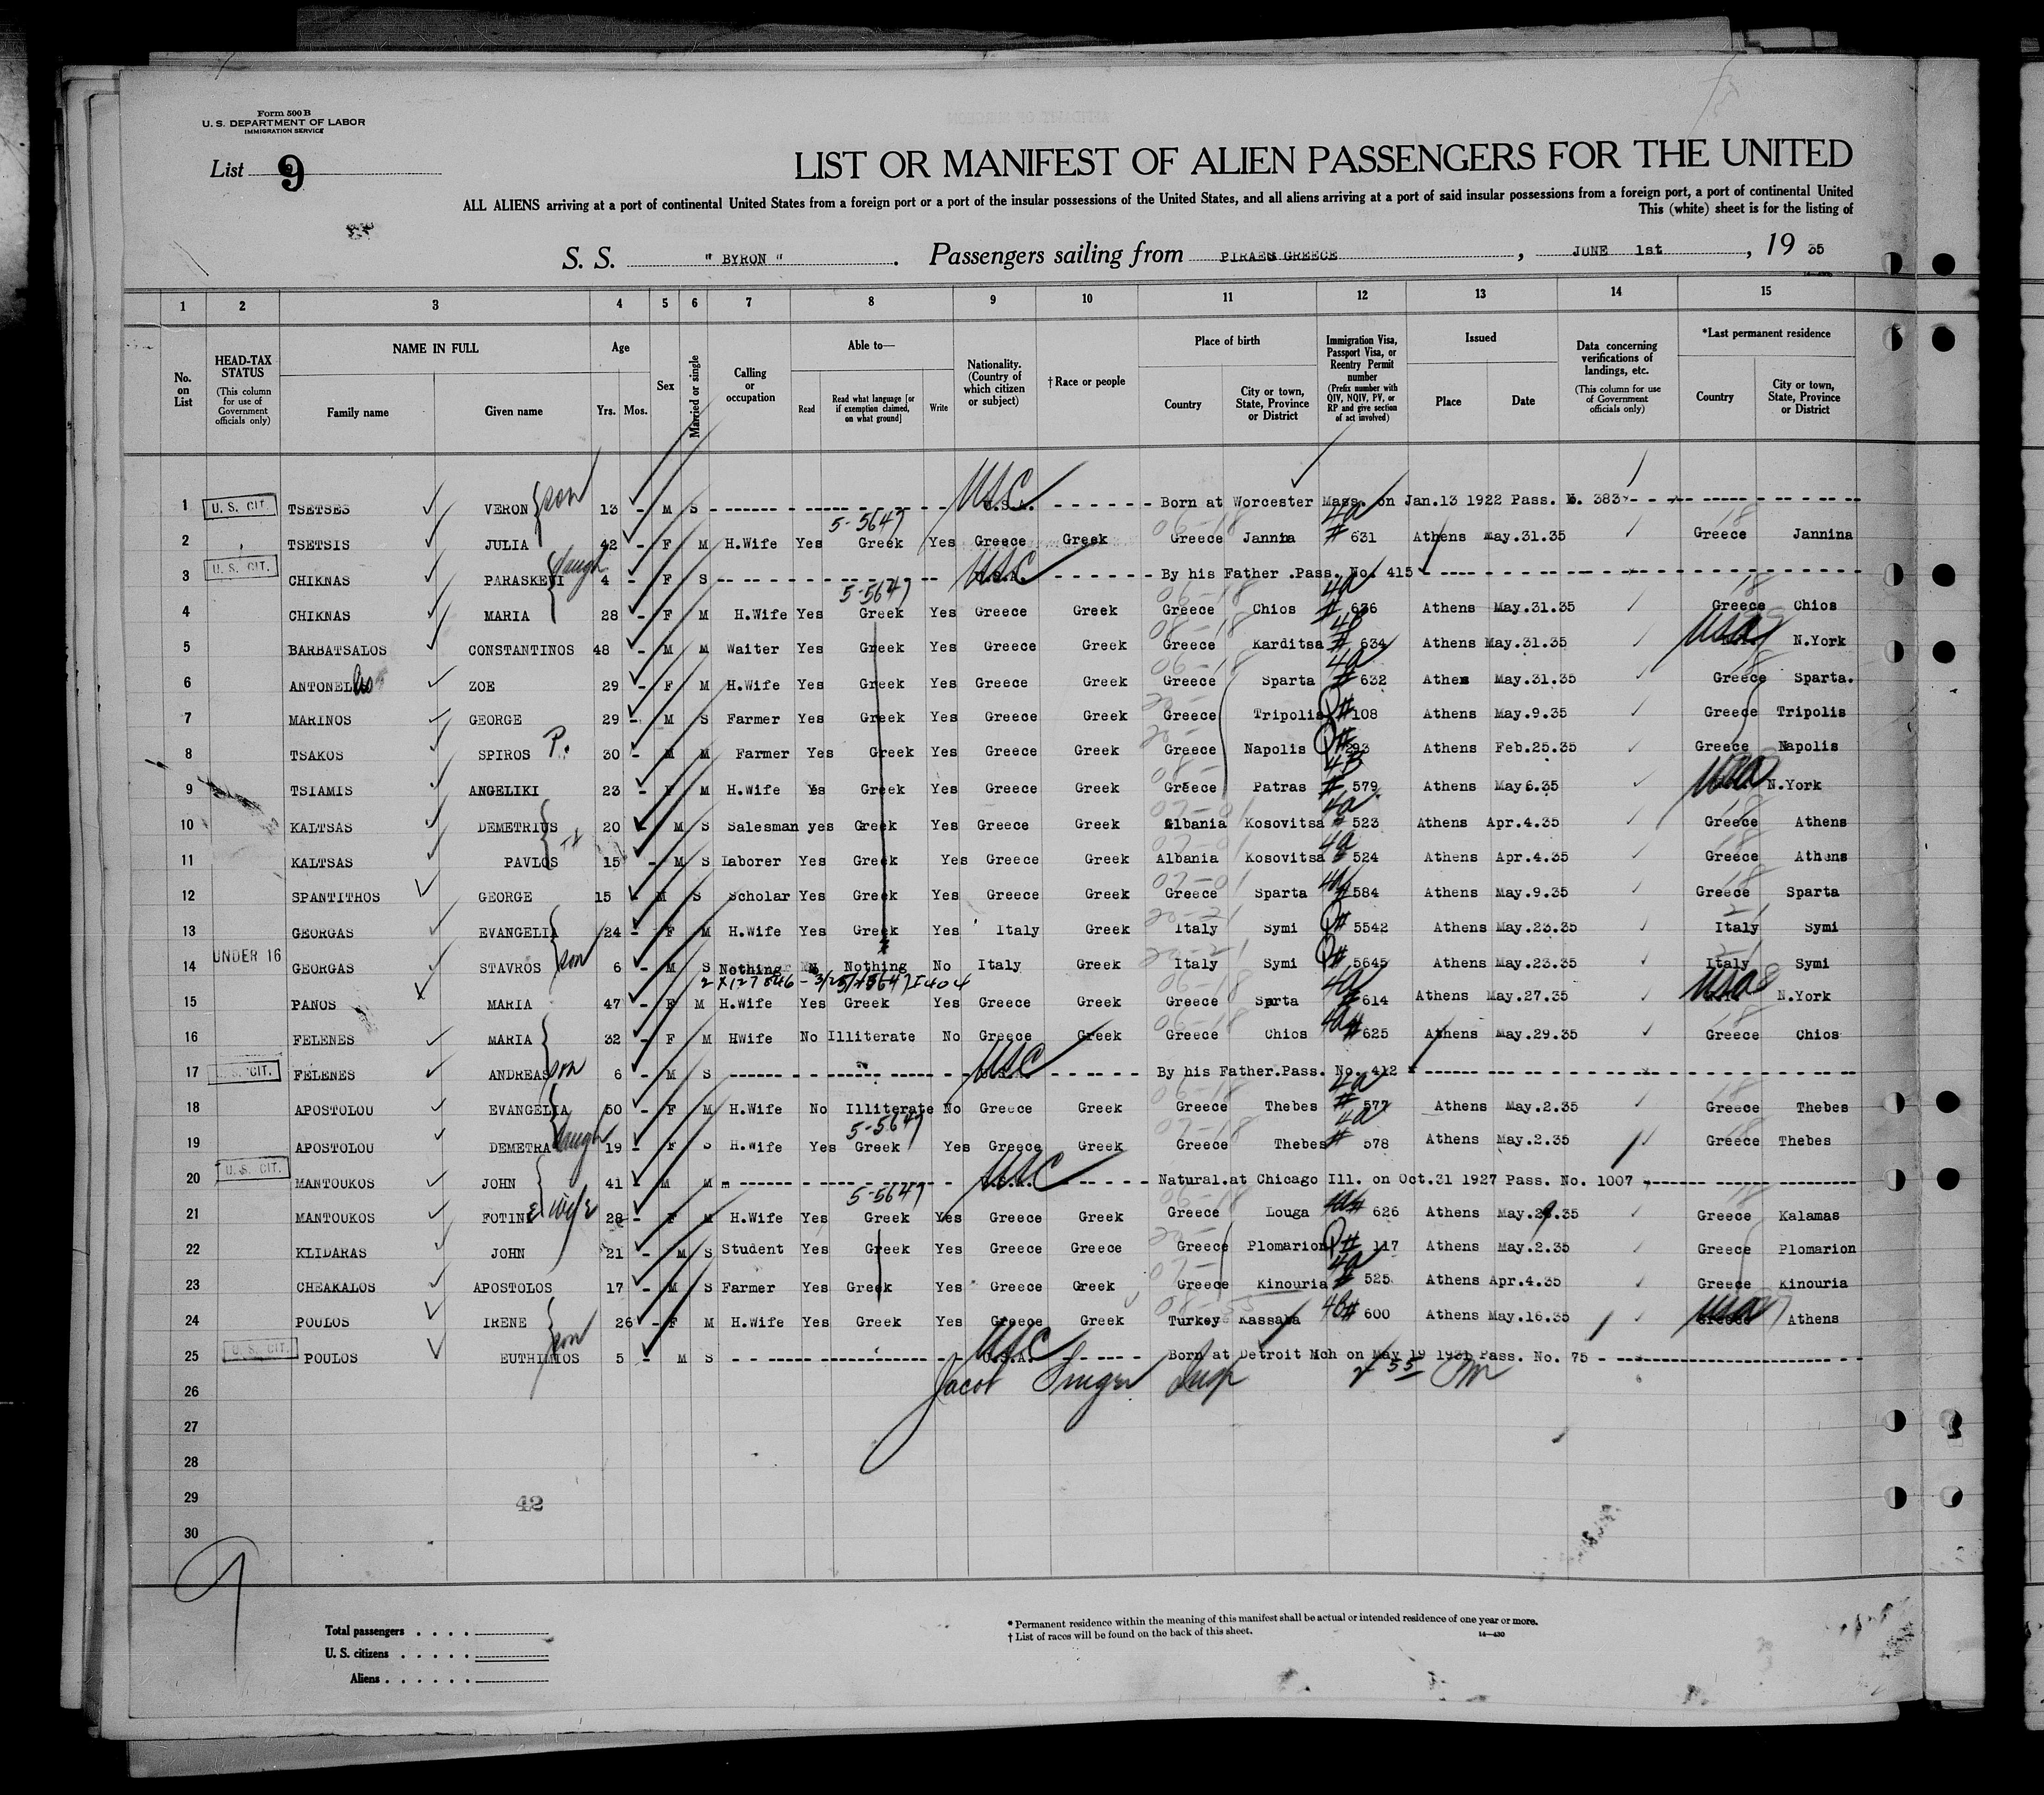 Form 500 B
U. S. DEPARTMENT OF LABOR
IMMIGRATION SERVICE
List 9
LIST OR MANIFEST OF ALIEN PASSENGERS FOR THE UNITED
ALL ALIENS arriving at a port of continental United States from a foreign port or a port of the insular possessions of the United States, and all aliens arriving at a port of said insular possessions from a foreign port, a port of continental United
This (white) sheet is for the listing of
S. S. " BYRON " . Passengers sailing from PIRAEUS GREECE , JUNE 1st , 19 35
1 2 3 4 5 6 7 8 9 10 11 12 13 14 15
No. on List
HEAD-TAX STATUS (This column for use of Government officials only)
NAME IN FULL Family name Given name
Age Yrs. Mos.
Sex
Married or single
Calling or occupation
Able to— Read Read what language [or if exemption claimed, on what ground] Write
Nationality. (Country of which citizen or subject)
† Race or people
Place of birth Country City or town, State, Province or District
Immigration Visa, Passport Visa, or Reentry Permit number (Prefix number with QIV, NQIV, PV, or RP and give section of act involved)
Issued Place Date
Data concerning verifications of landings, etc. (This column for use of Government officials only)
*Last permanent residence Country City or town, State, Province or District
1 U. S. CIT. TSETSES VERON son 13 - M S USC U.S.A. Born at Worcester Mass. on Jan.13 1922 Pass. 383
2 TSETSIS JULIA 42 - F M H.Wife Yes 5-5647 Greek Yes Greece Greek 06-18 Greece Jannina 4a # 631 Athens May.31.35 18 Greece Jannina
3 U. S. CIT. CHIKNAS PARASKEVI daugh 4 - F S USC U.S.A. By his Father .Pass. No. 415
4 CHIKNAS MARIA 28 - F M H.Wife Yes 5-5647 Greek Yes Greece Greek 06-18 Greece Chios 4a # 636 Athens May.31.35 18 Greece Chios
5 BARBATSALOS CONSTANTINOS 48 - M M Waiter Yes Greek Yes Greece Greek 08-18 Greece Karditsa 4B # 634 Athens May.31.35 USA N.York
6 ANTONEL ZOE 29 - F M H.Wife Yes Greek Yes Greece Greek 06-18 Greece Sparta 4a # 632 Athens May.31.35 18 Greece Sparta.
7 MARINOS GEORGE 29 - M S Farmer Yes Greek Yes Greece Greek 20- Greece Tripolis Q# 108 Athens May.9.35 Greece Tripolis
8 TSAKOS SPIROS P. 30 - M M Farmer Yes Greek Yes Greece Greek 20- Greece Napolis Q# 293 Athens Feb.25.35 Greece Napolis
9 TSIAMIS ANGELIKI 23 - F M H.Wife Yes Greek Yes Greece Greek 08- Greece Patras 4B # 579 Athens May6.35 USA N.York
10 KALTSAS DEMETRIUS 20 - M S Salesman yes Greek Yes Greece Greek 07-01 Albania Kosovitsa 4a # 523 Athens Apr.4.35 18 Greece Athens
11 KALTSAS PAVLOS 15 - M S Laborer Yes Greek Yes Greece Greek 07-01 Albania Kosovitsa 4a # 524 Athens Apr.4.35 18 Greece Athens
12 SPANTITHOS GEORGE 15 - M S Scholar Yes Greek Yes Greece Greek 07-01 Greece Sparta 4a # 584 Athens May.9.35 18 Greece Sparta
13 GEORGAS EVANGELIA 24 - F M H.Wife Yes Greek Yes Italy Greek 20-21 Italy Symi Q# 5542 Athens May.23.35 21 Italy Symi
14 UNDER 16 GEORGAS STAVROS son 6 - M S Nothing No Nothing No Italy Greek 20-21 Italy Symi Q# 5645 Athens May.23.35 21 Italy Symi
15 PANOS MARIA 47 - F M H.Wife Yes Greek Yes Greece Greek 06-18 Greece Sparta 4a # 614 Athens May.27.35 USA N.York
16 FELENES MARIA 32 - F M HWife No Illiterate No Greece Greek 06-18 Greece Chios 4a# 625 Athens May.29.35 18 Greece Chios
17 U. S. CIT. FELENES ANDREAS son 6 - M S USC U.S.A. By his Father.Pass. No. 412
18 APOSTOLOU EVANGELIA 50 - F M H.Wife No Illiterate No Greece Greek 06-18 Greece Thebes 4a # 577 Athens May.2.35 18 Greece Thebes
19 APOSTOLOU DEMETRA daugh 19 - F S H.Wife Yes 5-5647 Greek Yes Greece Greek 07-18 Greece Thebes 4a # 578 Athens May.2.35 18 Greece Thebes
20 U. S. CIT. MANTOUKOS JOHN 41 M M USC U.S.A. Natural.at Chicago Ill. on Oct.31 1927 Pass. No. 1007
21 MANTOUKOS FOTINE wife 28 - F M H.Wife Yes 5-5647 Greek Yes Greece Greek 06-18 Greece Louga 4a# 626 Athens May.29.35 18 Greece Kalamas
22 KLIDARAS JOHN 21 - M S Student Yes Greek Yes Greece Greece 20- Greece Plomarion Q# 117 Athens May.2.35 Greece Plomarion
23 CHEAKALOS APOSTOLOS 17 - M S Farmer Yes Greek Yes Greece Greek 07- Greece Kinouria 4a # 525 Athens Apr.4.35 Greece Kinouria
24 POULOS IRENE 26 - F M H.Wife Yes Greek Yes Greece Greek 08-55 Turkey Kassaba 4B# 600 Athens May.16.35 USA Greece Athens
25 U. S. CIT. POULOS EUTHIMIOS son 5 - M S USC U.S.A. Born at Detroit Mch on May 19 1931 Pass. No. 75
26 Jacob Singer Insp
27
28
29
42
30
9
Total passengers . . . .
U. S. citizens . . . . .
Aliens . . . . . .
* Permanent residence within the meaning of this manifest shall be actual or intended residence of one year or more.
† List of races will be found on the back of this sheet. 14—430